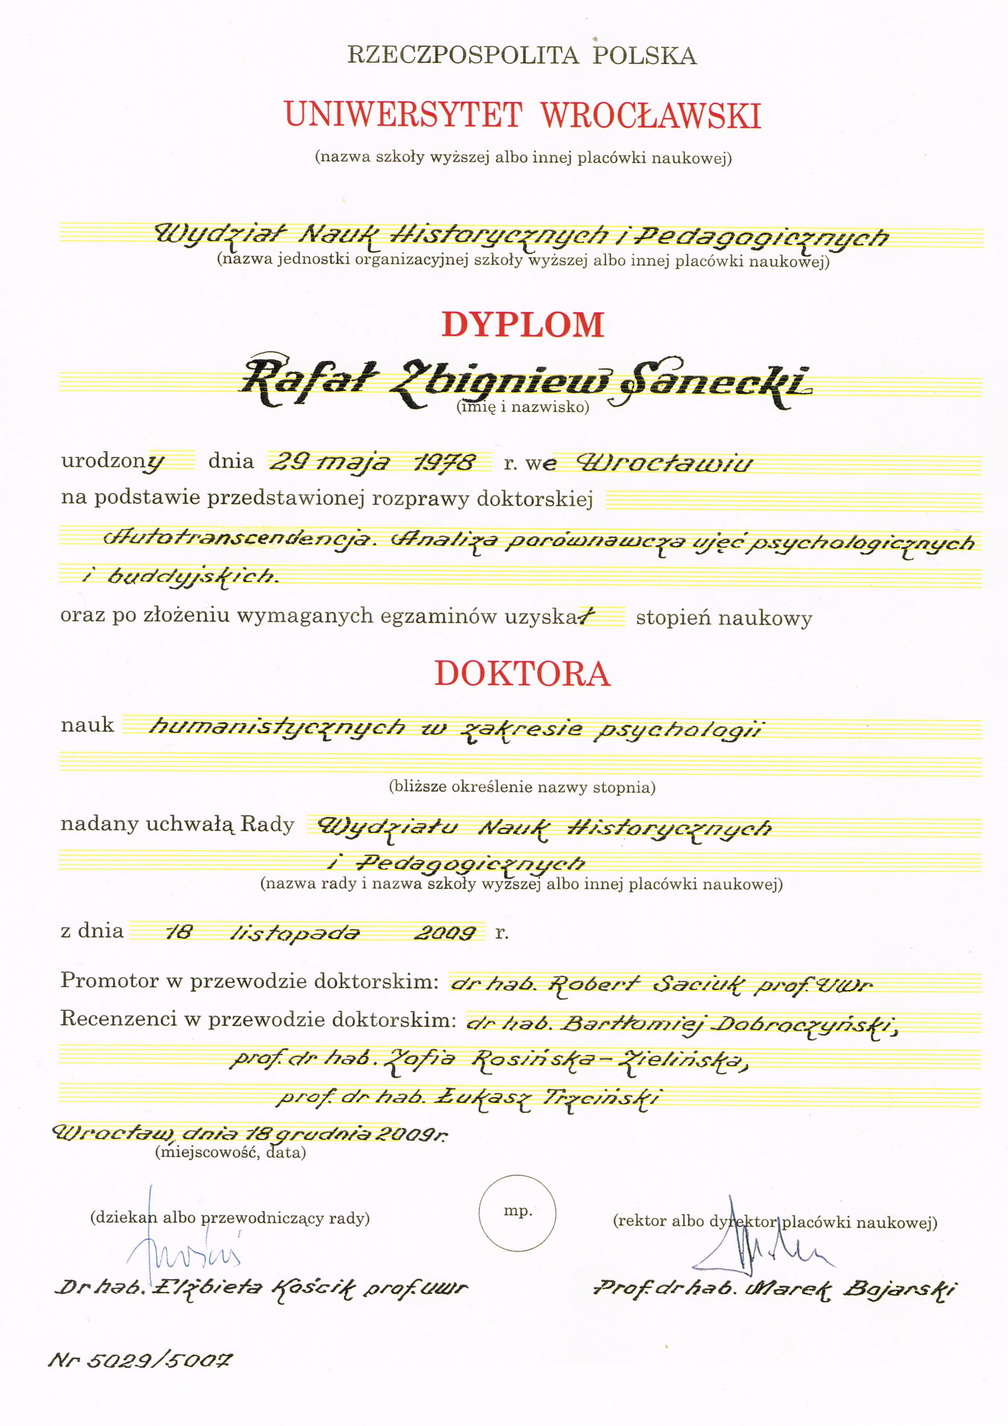 RZECZPOSPOLITA POLSKA
UNIWERSYTET WROCŁAWSKI
(nazwa szkoły wyższej albo innej placówki naukowej)
Wydział Nauk Historycznych i Pedagogicznych
(nazwa jednostki organizacyjnej szkoły wyższej albo innej placówki naukowej)
DYPLOM
Rafał Zbigniew Sanecki
(imię i nazwisko)
urodzony dnia 29 maja 1978 r. we Wrocławiu
na podstawie przedstawionej rozprawy doktorskiej
Autotranscendencja. Analiza porównawcza ujęć psychologicznych
i buddyjskich.
oraz po złożeniu wymaganych egzaminów uzyskał stopień naukowy
DOKTORA
nauk humanistycznych w zakresie psychologii
(bliższe określenie nazwy stopnia)
nadany uchwałą Rady Wydziału Nauk Historycznych
i Pedagogicznych
(nazwa rady i nazwa szkoły wyższej albo innej placówki naukowej)
z dnia 18 listopada 2009 r.
Promotor w przewodzie doktorskim: dr hab. Robert Saciuk prof. UWr
Recenzenci w przewodzie doktorskim: dr hab. Bartłomiej Dobroczyński,
prof. dr hab. Zofia Rosińska-Zielińska,
prof. dr hab. Łukasz Trzciński
Wrocław, dnia 18 grudnia 2009r.
(miejscowość, data)
(dziekan albo przewodniczący rady)
mp.
(rektor albo dyrektor placówki naukowej)
Dr hab. Elżbieta Kościk prof. UWr
Prof. dr hab. Marek Bojarski
Nr 5029/5007